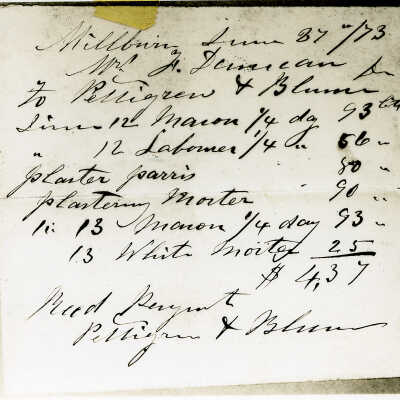 Millburn June 27 "/73
Mr J. Duncan Dr
To Pettigrew & Blume
June 12 Mason 1/4 day 93 cts
" 12 Laborner 1/4 " 56 "
plaster parris 80 "
plastering Morter 90 "
13 Mason 1/4 day 93 "
13 White Morter 25
$ 4,37
Recd Payment
Pettigrew & Blume